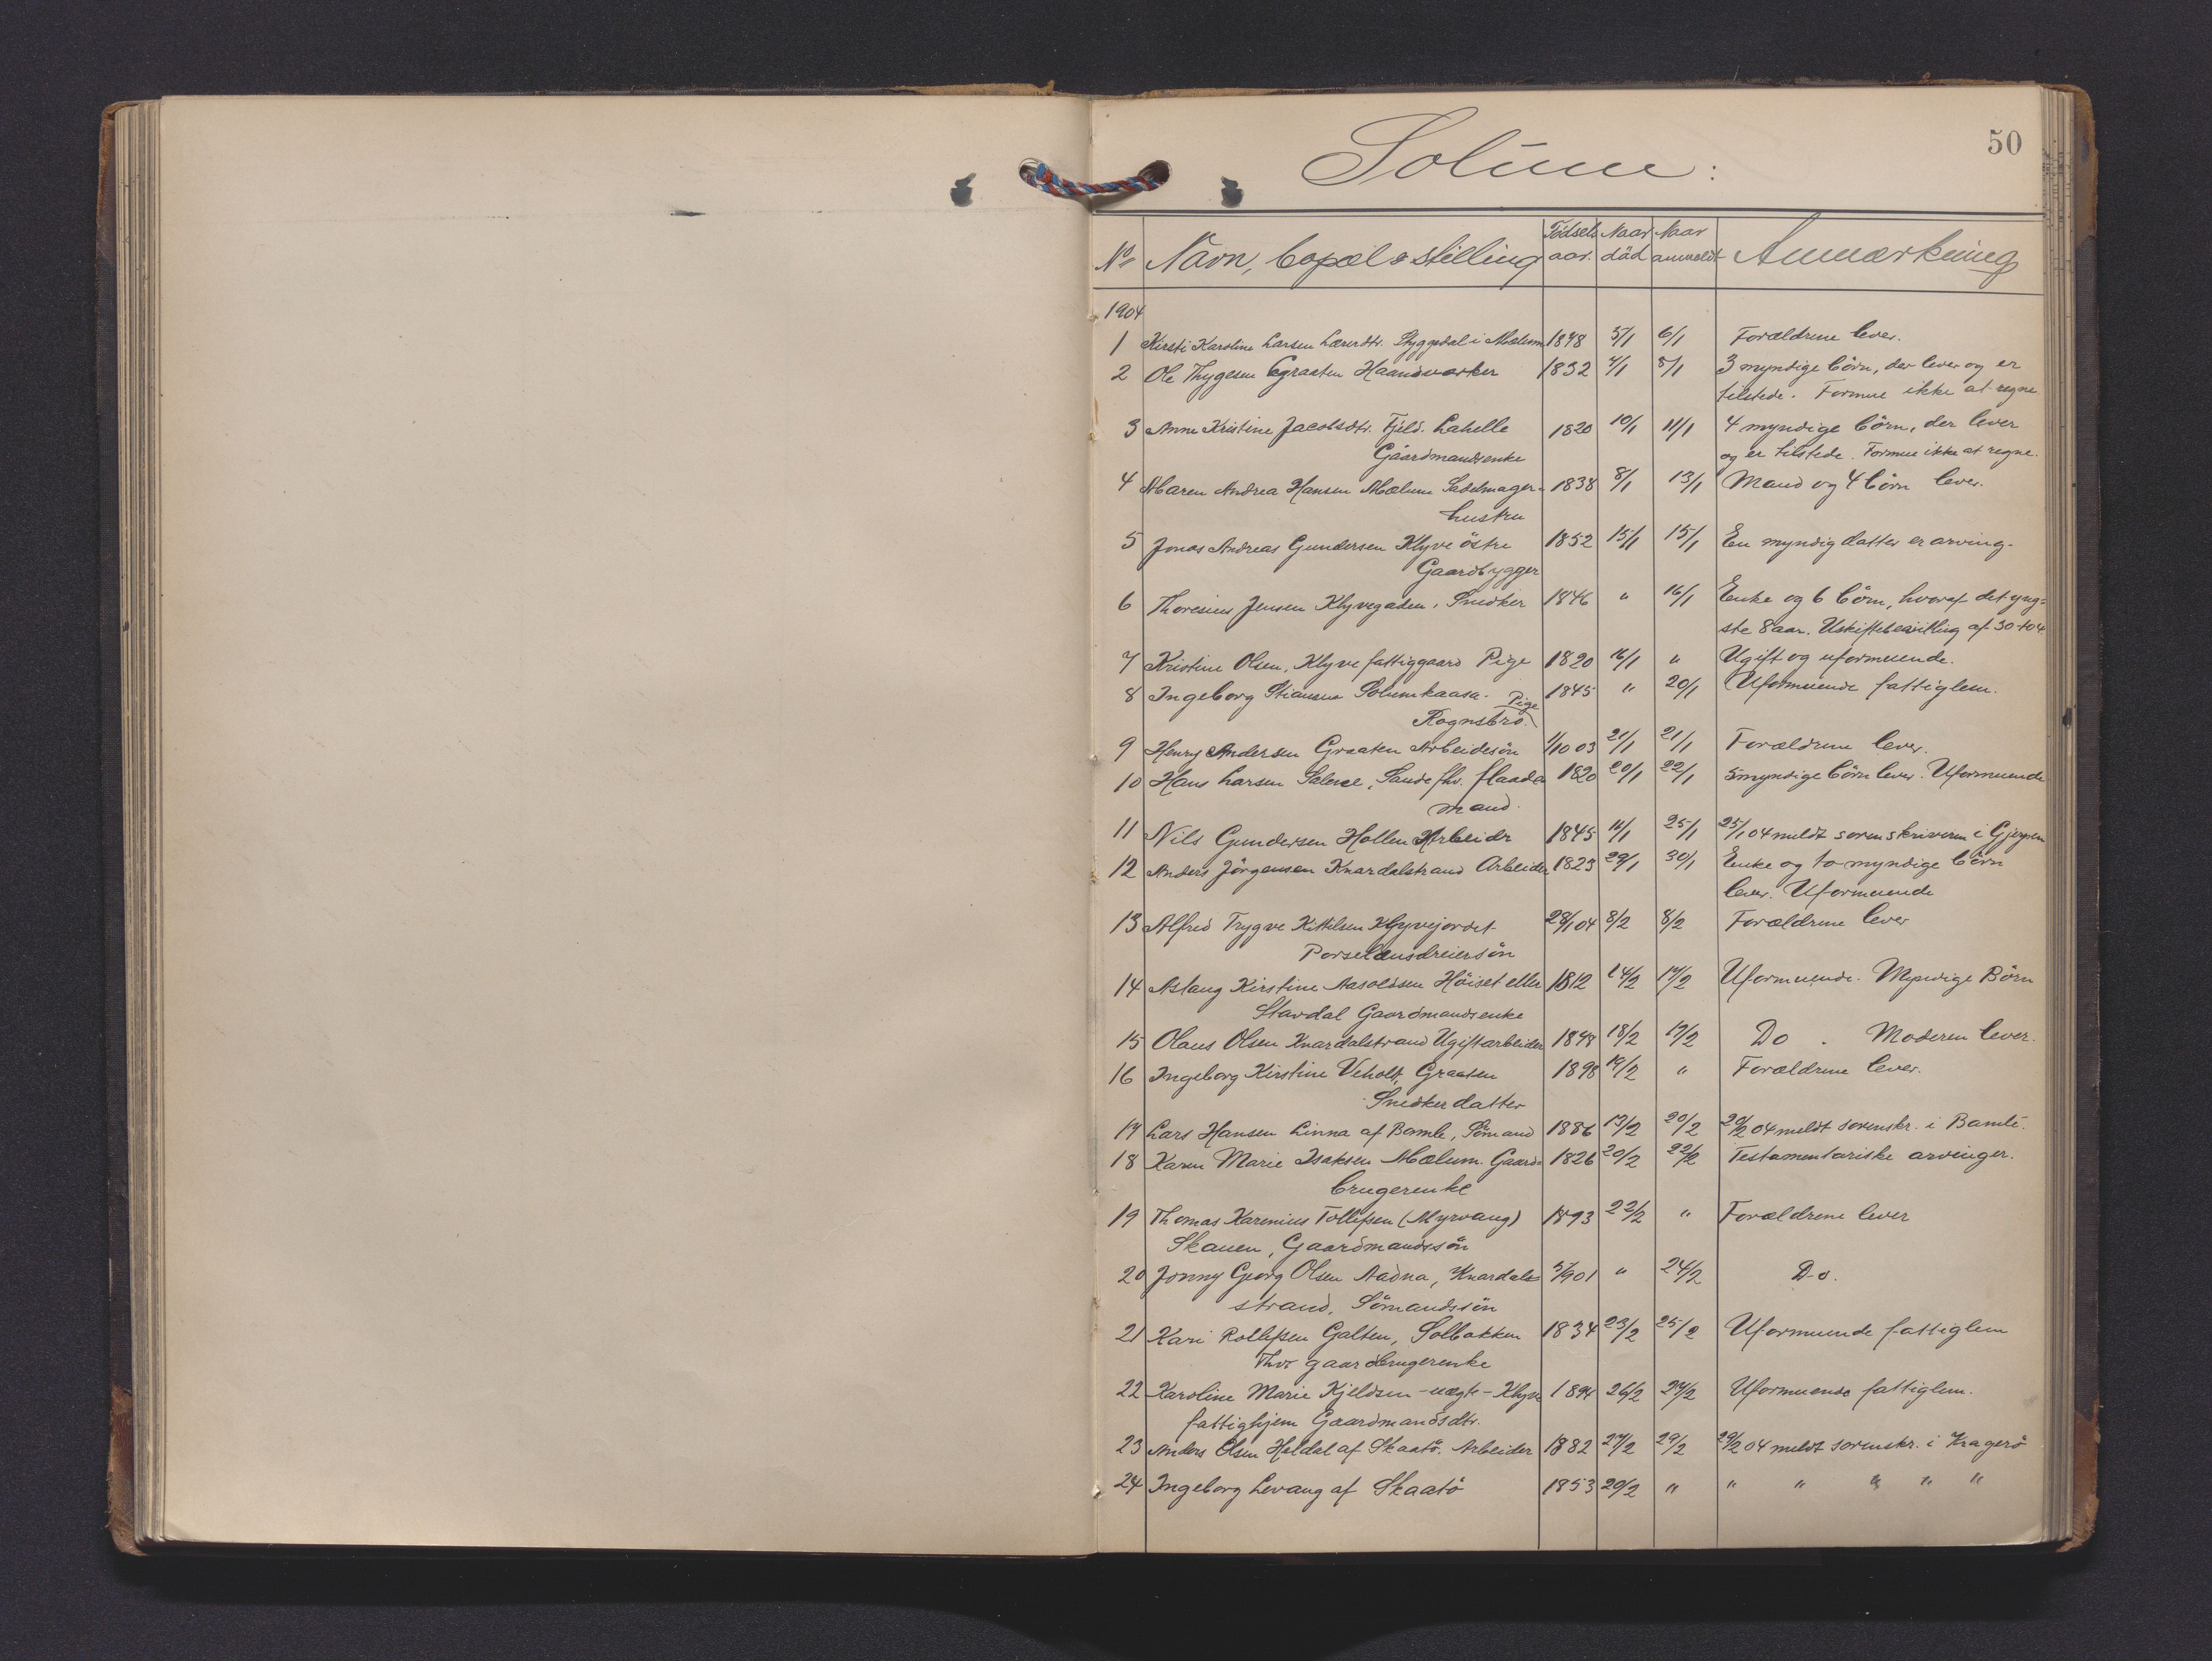 50
Solum:
No Navn, bopæl & stilling Födsels aar. Naar död Naar anmeldt Anmærkning
1904
1 Kirsti Karoline Larsen Lærerdtr. Styggedal i Mælum 1898 5/1 6/1 Forældrene lever.
2 Ole Thygesen Graaten Haandværker 1832 4/1 8/1 3 myndige börn, der lever og er
tilstede. Formue ikke at regne
3 Anne Kristine Jacobsdtr. Fjeld. Lahelle 1820 10/1 11/1 4 myndige börn, der lever
Gaardmandsenke og er tilstede. Formue ikke at regne.
4 Maren Andrea Hansen Mælum Sadelmager- 1838 8/1 13/1 Mand og 4 börn lever.
hustru
5 Jonas Andreas Gundersen Klyve östre 1852 15/1 15/1 En myndig datter er arving.
Gaardbygger
6 Thoresius Jensen Klyvegaden. Snedker 1846 " 16/1 Enke og 6 börn, hvoraf det yng=
ste 8 aar. Uskiftebevilling af 30-1-04
7 Kristine Olsen, Klyve fattiggaard Pige 1820 16/1 " Ugift og uformuende.
8 Ingeborg Stiansen Solumkaasa. Pige 1845 " 20/1 Uformuende fattiglem.
Rognsbro.
9 Henry Andersen Graaten Arbeidesön 1/10 03 21/1 21/1 Forældrene lever.
10 Hans Larsen Salene, Sande fhv. flaade 1820 20/1 22/1 5 myndige börn lever. Uformuende
mand.
11 Nils Gundersen Hollen Arbeidr 1845 16/1 25/1 25/1 04 meldt sorenskriveren i Gjerpen
12 Anders Jörgensen Knardalstrand Arbeider 1823 29/1 30/1 Enke og to myndige börn
lever. Uformuende
13 Alfred Trygve Kittilsen Klyvejordet 28/1 04 8/2 8/2 Forældrene lever
Porselænsdreiersön
14 Aslaug Kirstine Aasoldsen Höiset eller 1812 14/2 17/2 Uformuende. Myndige Börn
Stavdal Gaardmandsenke
15 Olaus Olsen Knardalstrand Ugift arbeider 1878 18/2 19/2 Do. Moderen lever.
16 Ingeborg Kirstine Veholt, Graaten 1898 19/2 " Forældrene lever.
Snedkerdatter
17 Lars Hansen Linna af Bamle, Sömand 1886 19/2 20/2 20/2 04 meldt sorenskr. i Bamle.
18 Karen Marie Isaksen Mælum. Gaard= 1826 20/2 22/2 Testamentariske arvinger.
brugerenke
19 Thomas Karenius Tollefsen (Myrvang) 1893 22/2 " Forældrene lever
Skauen, Gaardmandssön
20 Jonny Georg Olsen Aadna, Knardals= 5/9 01 " 24/2 Do.
strand, Sömandssön
21 Kari Rollefsen Galten, Solbakken 1834 23/2 25/2 Uformuende fattiglem
fhv gaardbrugerenke
22 Karoline Marie Kjeldsen -uægte- Klyve 1894 26/2 27/2 Uformuende fattiglem.
fattighjem Gaardmandsdtr.
23 Anders Olsen Heldal af Skaatö. Arbeider 1882 27/2 29/2 29/2 04 meldt sorenskr. i Kragerö
24 Ingeborg Levang af Skaatö 1853 20/2 " " " " " "